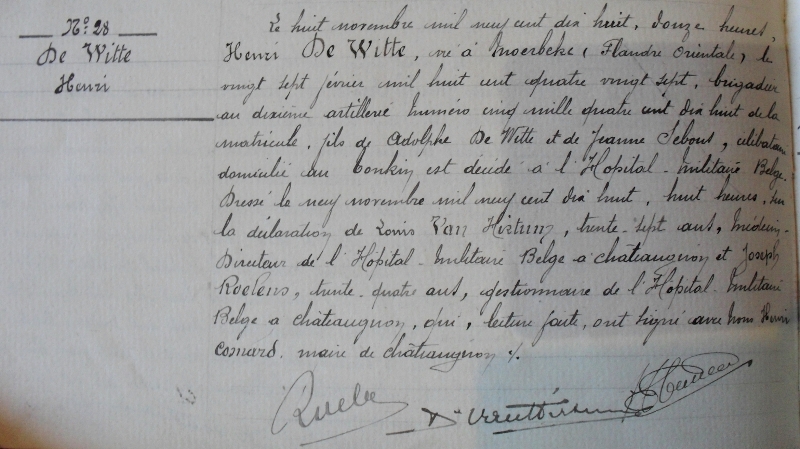 N° 28
De Witte
Henri
Le huit novembre mil neuf cent dix huit, douze heures,
Henri De Witte, né à Moerbeke (Flandre Orientale) le
vingt sept février mil huit cent quatre vingt sept, brigadier
au dixième artillerie numéro cinq mille quatre cent dix huit de la
matricule, fils de Adolphe De Witte et de Jeanne célibataire
domicilié au tonkin est décédé à l'Hopital-Militaire Belge.
Dressé le neuf novembre mil neuf cent dix huit, huit heures, sur
la déclaration de Louis Van, trente-sept ans, Médecin-
Directeur de l'Hopital-Militaire Belge à chateaugiron et Joseph
Roelens, trente-quatre ans, gestionnaire de l'Hopital-Militaire
Belge à châteaugiron, qui, lecture faite, ont signé avec nous Henri
maire de châteaugiron ./.